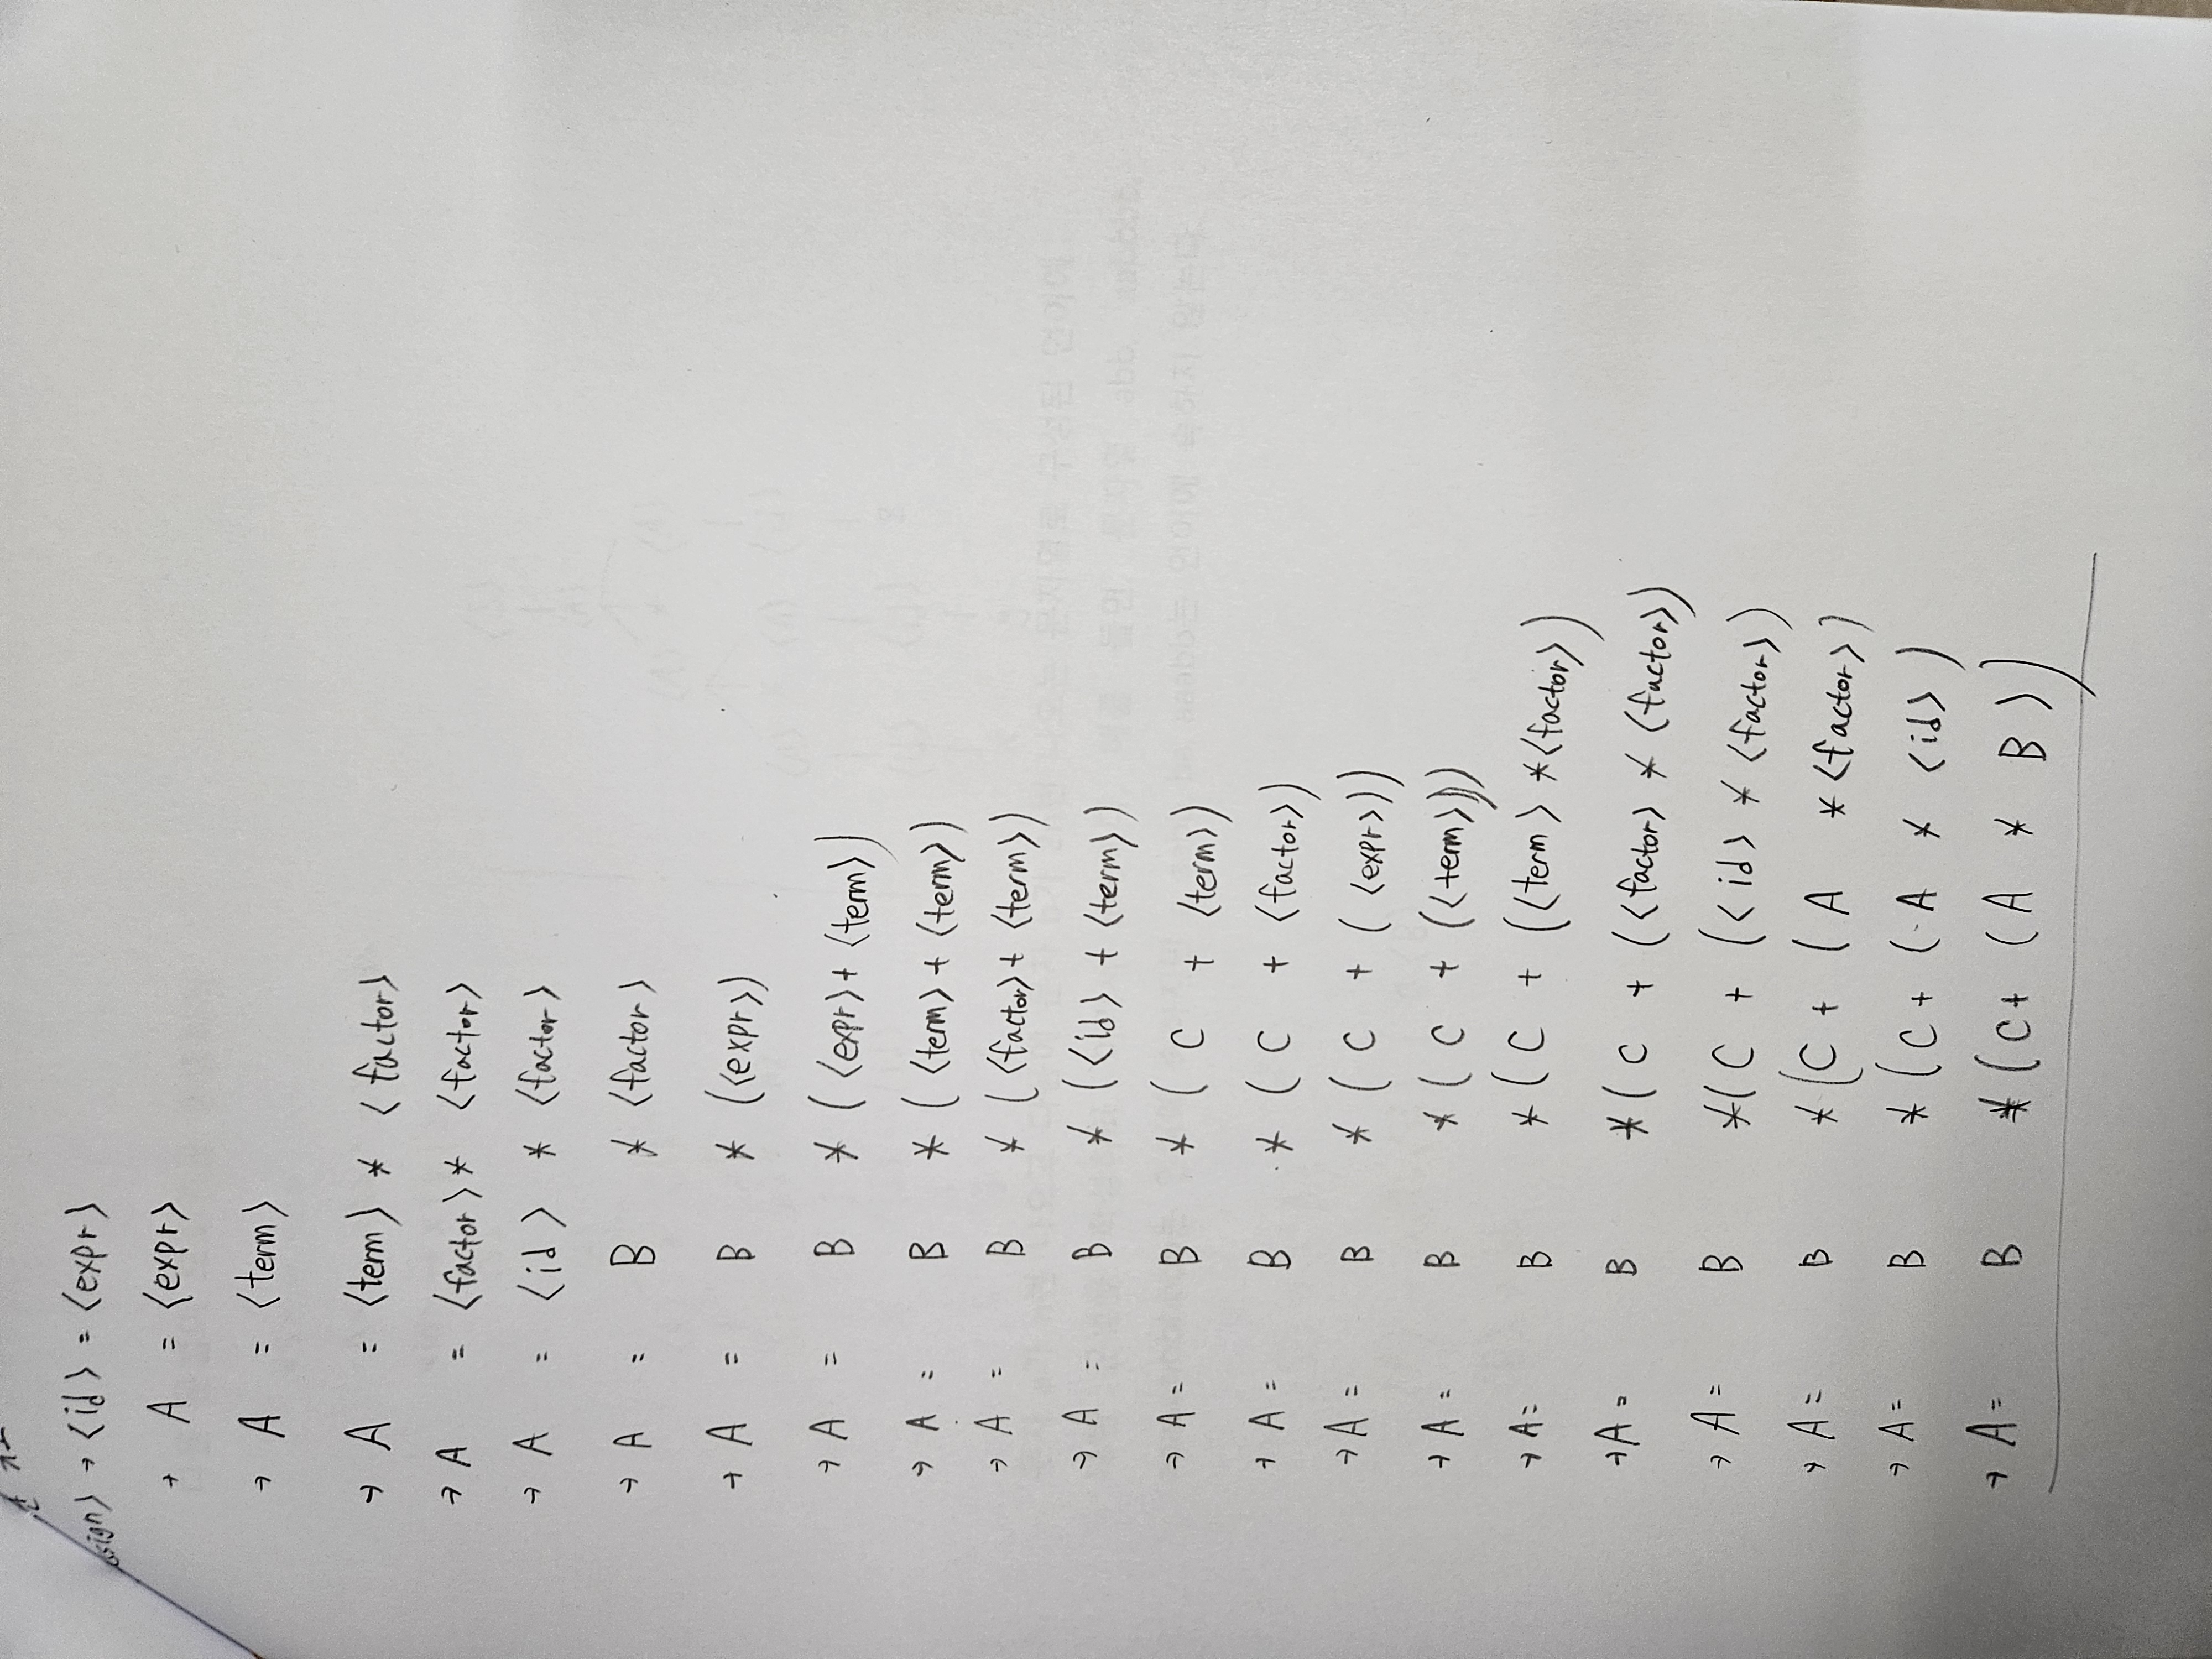 sign> → <id> = <expr>
→ A = <expr>
→ A = <term>
→ A = <term> * <factor>
→ A = <factor> * <factor>
→ A = <id> * <factor>
→ A = B * <factor>
→ A = B * (<expr>)
→ A = B * (<expr> + <term>)
→ A = B * (<term> + <term>)
→ A = B * (<factor> + <term>)
→ A = B * (<id> + <term>)
→ A = B * ( C + <term>)
→ A = B * ( C + <factor>)
→ A = B * ( C + ( <expr>))
→ A = B * ( C + (<term>))
→ A = B * ( C + (<term> * <factor>)
→ A = B * ( C + (<factor> * <factor>)
→ A = B * ( C + (<id> * <factor>)
→ A = B * ( C + ( A * <factor>)
→ A = B * ( C + ( A * <id> )
→ A = B * ( C + ( A * B ))